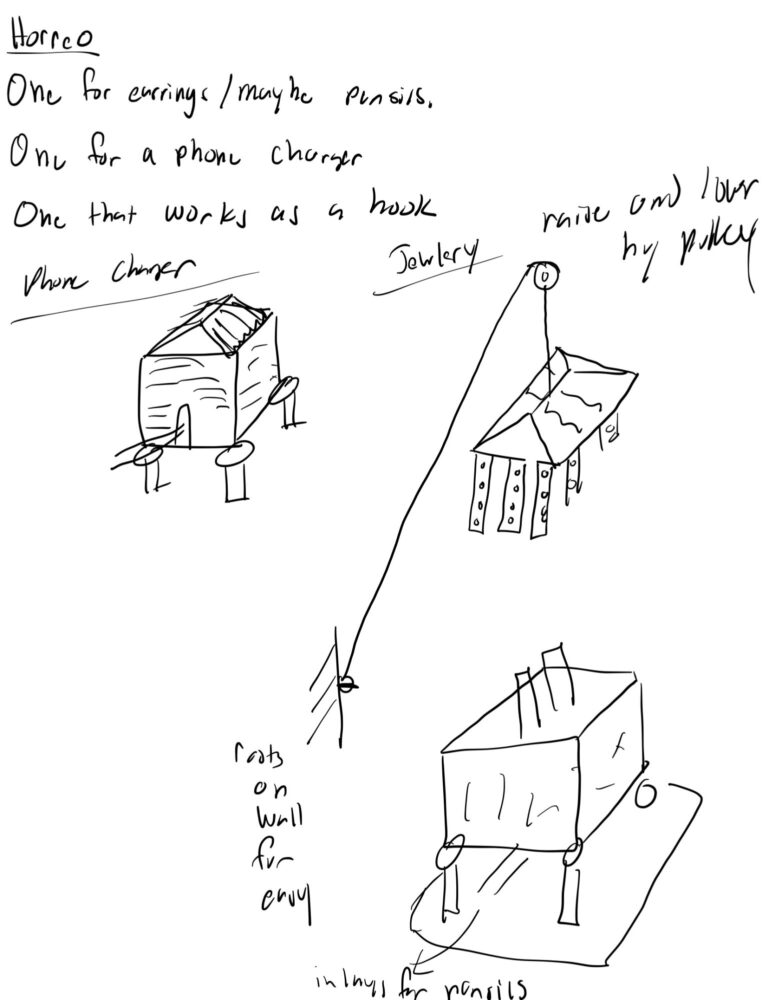 Horreo
One for earrings/maybe pensils.
One for a phone charger
One that works as a hook
raise and lower
by pulley
Phone Charger
Jewlery
on
wall
for
inlays for pensils